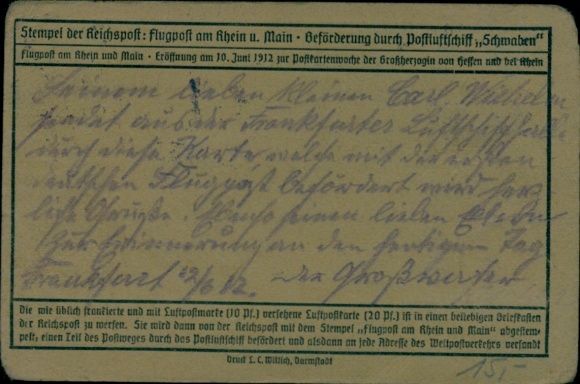 Stempel der Reichspost: Flugpost am Rhein u. Main · Beförderung durch Postluftschiff „Schwaben“
Flugpost am Rhein und Main · Eröffnung am 10. Juni 1912 zur Postkartenwoche der Großherzogin von Hessen und bei Rhein
Seinem lieben kleinen Carl Wilhelm
sendet aus der Frankfurter Luftschiffhalle
durch diese Karte welche mit der ersten
deutschen Flugpost befördert wird herz-
liche Grüße. Ebenso seinen lieben Eltern
Zur Erinnerung an den heutigen Tag
Frankfurt 12/6 12. der Großvater
Die wie üblich frankierte und mit Luftpostmarke (10 Pf.) versehene Luftpostkarte (20 Pf.) ist in einen beliebigen Briefkasten
der Reichspost zu werfen. Sie wird dann von der Reichspost mit dem Stempel „Flugpost am Rhein und Main“ abgestem-
pelt, einen Teil des Postweges durch das Postluftschiff befördert und alsdann an jede Adresse des Weltpostverkehrs versandt
Druck L. C. Wittich, Darmstadt
15,-